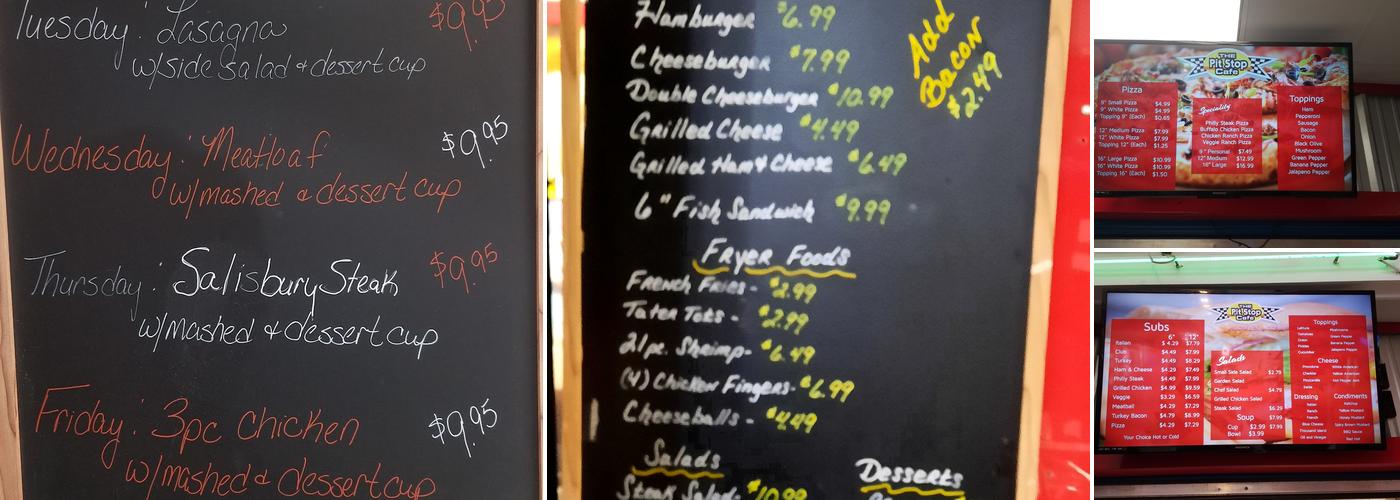 Tuesday: Lasagna $9.95
w/side salad & dessert cup
Wednesday: Meatloaf $9.95
w/mashed & dessert cup
Thursday: Salisbury Steak $9.95
w/mashed & dessert cup
Friday: 3pc Chicken $9.95
w/mashed & dessert cup
Hamburger $6.99
Cheeseburger $7.99
Double Cheeseburger $10.99
Grilled Cheese $4.49
Grilled Ham & Cheese $6.49
6" Fish Sandwich $9.99
Add
Bacon
$2.49
Fryer Foods
French Fries - $2.99
Tater Tots - $2.99
21pc. Shrimp - $6.49
(4) Chicken Fingers - $6.99
Cheeseballs - $4.49
Salads
Steak Salad - $10.99
Desserts
THE
Pit Stop
Cafe
Pizza
9" Small Pizza $4.99
9" White Pizza $4.99
Topping 9" (Each) $0.65
12" Medium Pizza $7.99
12" White Pizza $7.99
Topping 12" (Each) $1.25
16" Large Pizza $10.99
16" White Pizza $10.99
Topping 16" (Each) $1.50
Speciality
Philly Steak Pizza
Buffalo Chicken Pizza
Chicken Ranch Pizza
Veggie Ranch Pizza
9" Personal $7.49
12" Medium $12.99
16" Large $16.99
Toppings
Ham
Pepperoni
Sausage
Bacon
Onion
Black Olive
Mushroom
Green Pepper
Banana Pepper
Jalapeno Pepper
THE
Pit Stop
Cafe
Subs
6" 12"
Italian $4.29 $7.79
Club $4.49 $7.99
Turkey $4.49 $8.29
Ham & Cheese $4.29 $7.49
Philly Steak $4.49 $7.99
Grilled Chicken $4.99 $9.59
Veggie $3.29 $6.59
Meatball $4.29 $7.29
Turkey Bacon $4.79 $8.99
Pizza $4.29 $7.29
Your Choice Hot or Cold
Salads
Small Side Salad $2.79
Garden Salad
Chef Salad $4.79
Grilled Chicken Salad
Steak Salad $6.29
Soup $7.99
Cup $2.99 $7.99
Bowl $3.99
Toppings
Lettuce Mushrooms
Tomatoes Green Pepper
Onion Banana Pepper
Pickles Jalapeno Pepper
Cucumber
Cheese
Provolone White American
Cheddar Yellow American
Mozzarella Hot Pepper Jack
Swiss
Dressing
Italian
Ranch
French
Blue Cheese
Thousand Island
Oil and Vinegar
Condiments
Ketchup
Yellow Mustard
Honey Mustard
Spicy Brown Mustard
BBQ Sauce
Red Hot